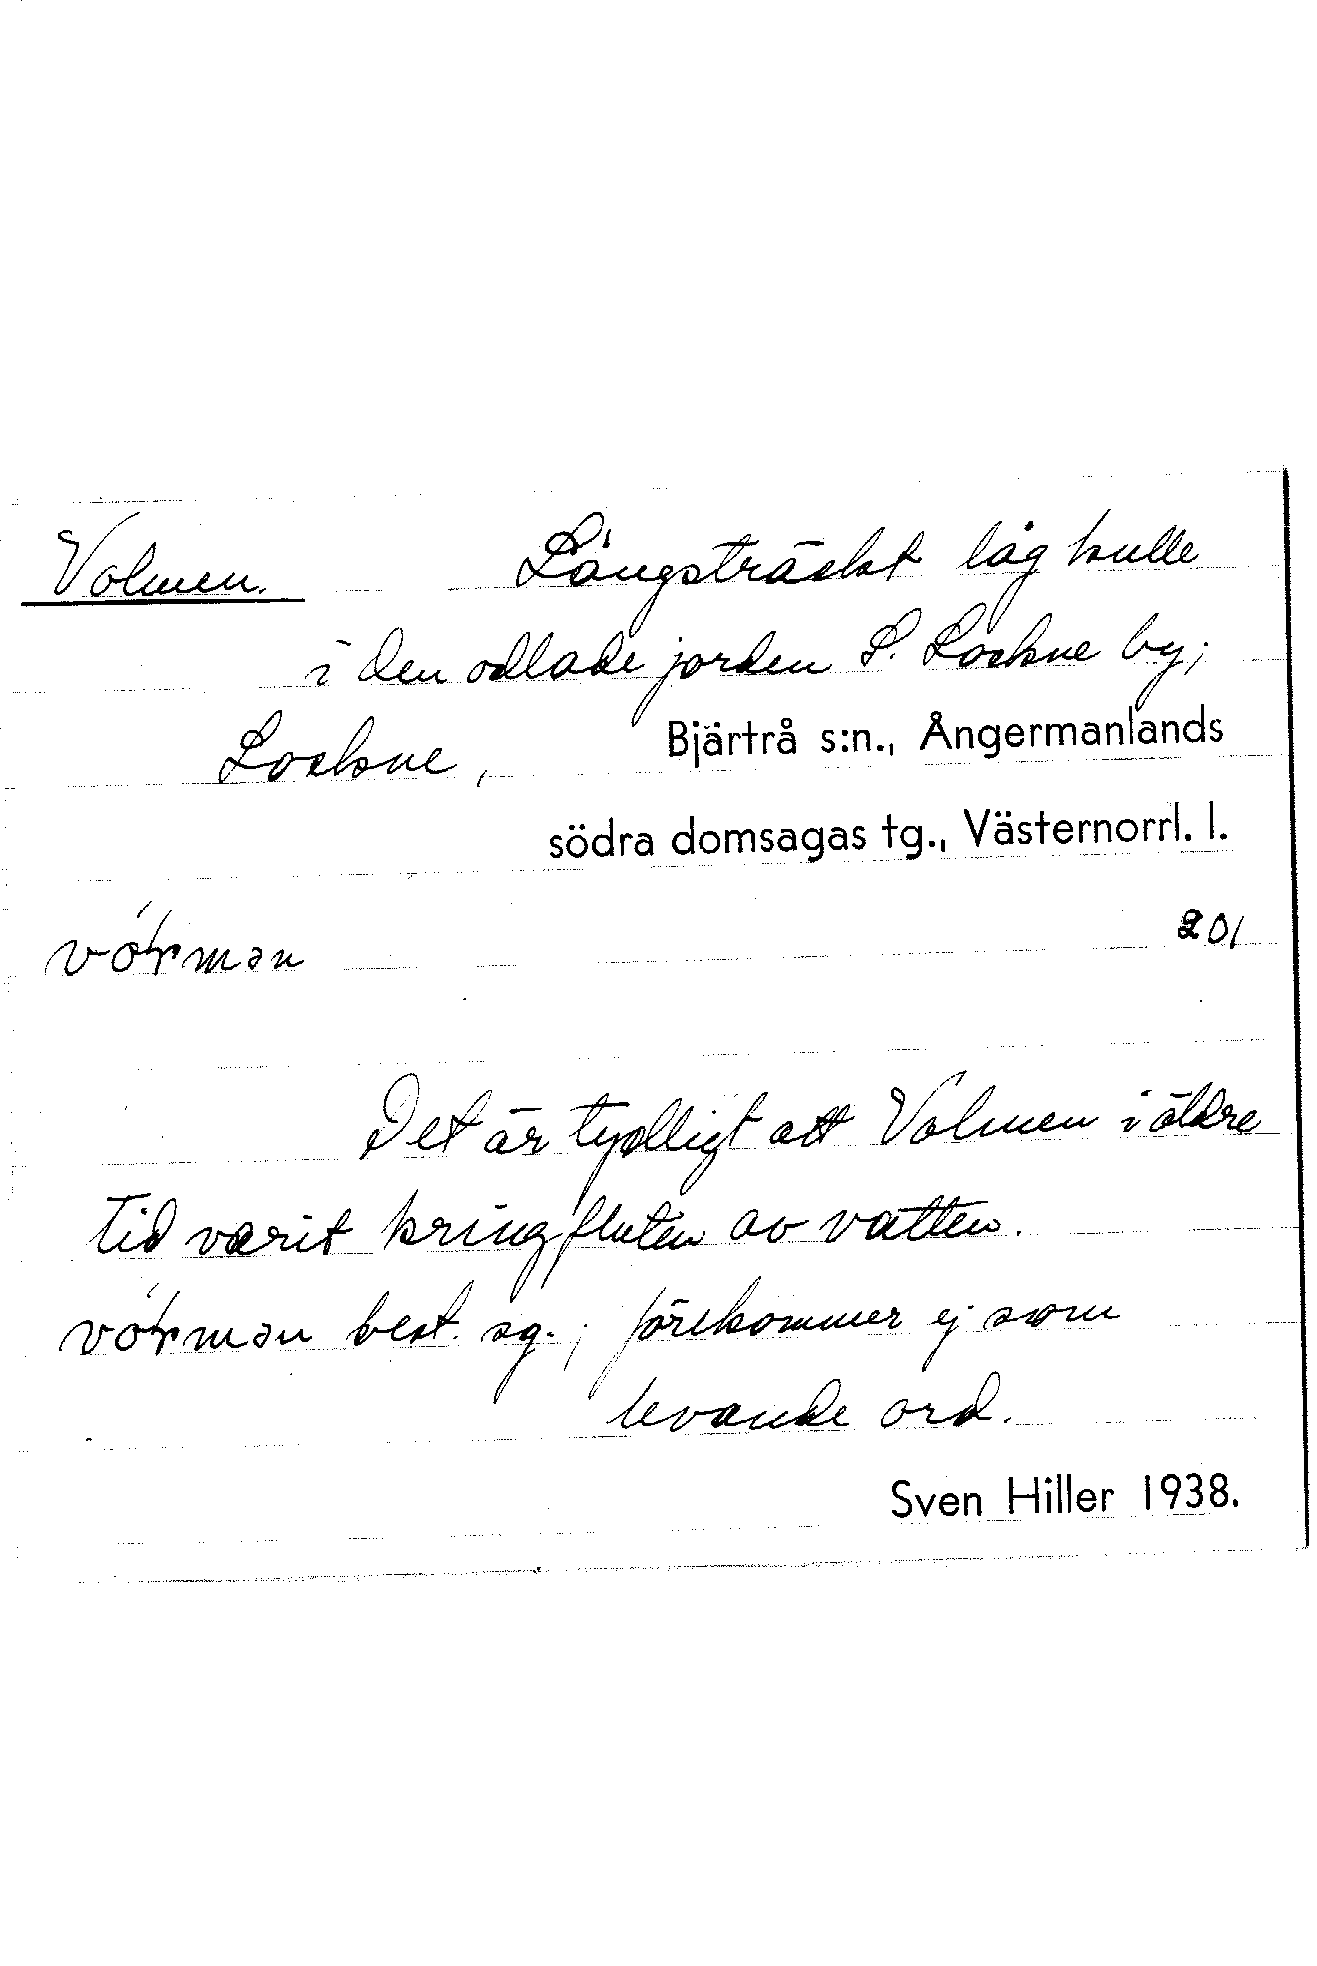 Volmen. Långsträckt låg kulle
i den odlade jorden S. Lockne by;
Lockne, Bjärtrå s:n., Ångermanlands
södra domsagas tg., Västernorrl. l.
201
Det är tydligt att Volmen i äldre
tid varit kringfluten av vatten.
best. sg.; förekommer ej som
levande ord.
Sven Hiller 1938.